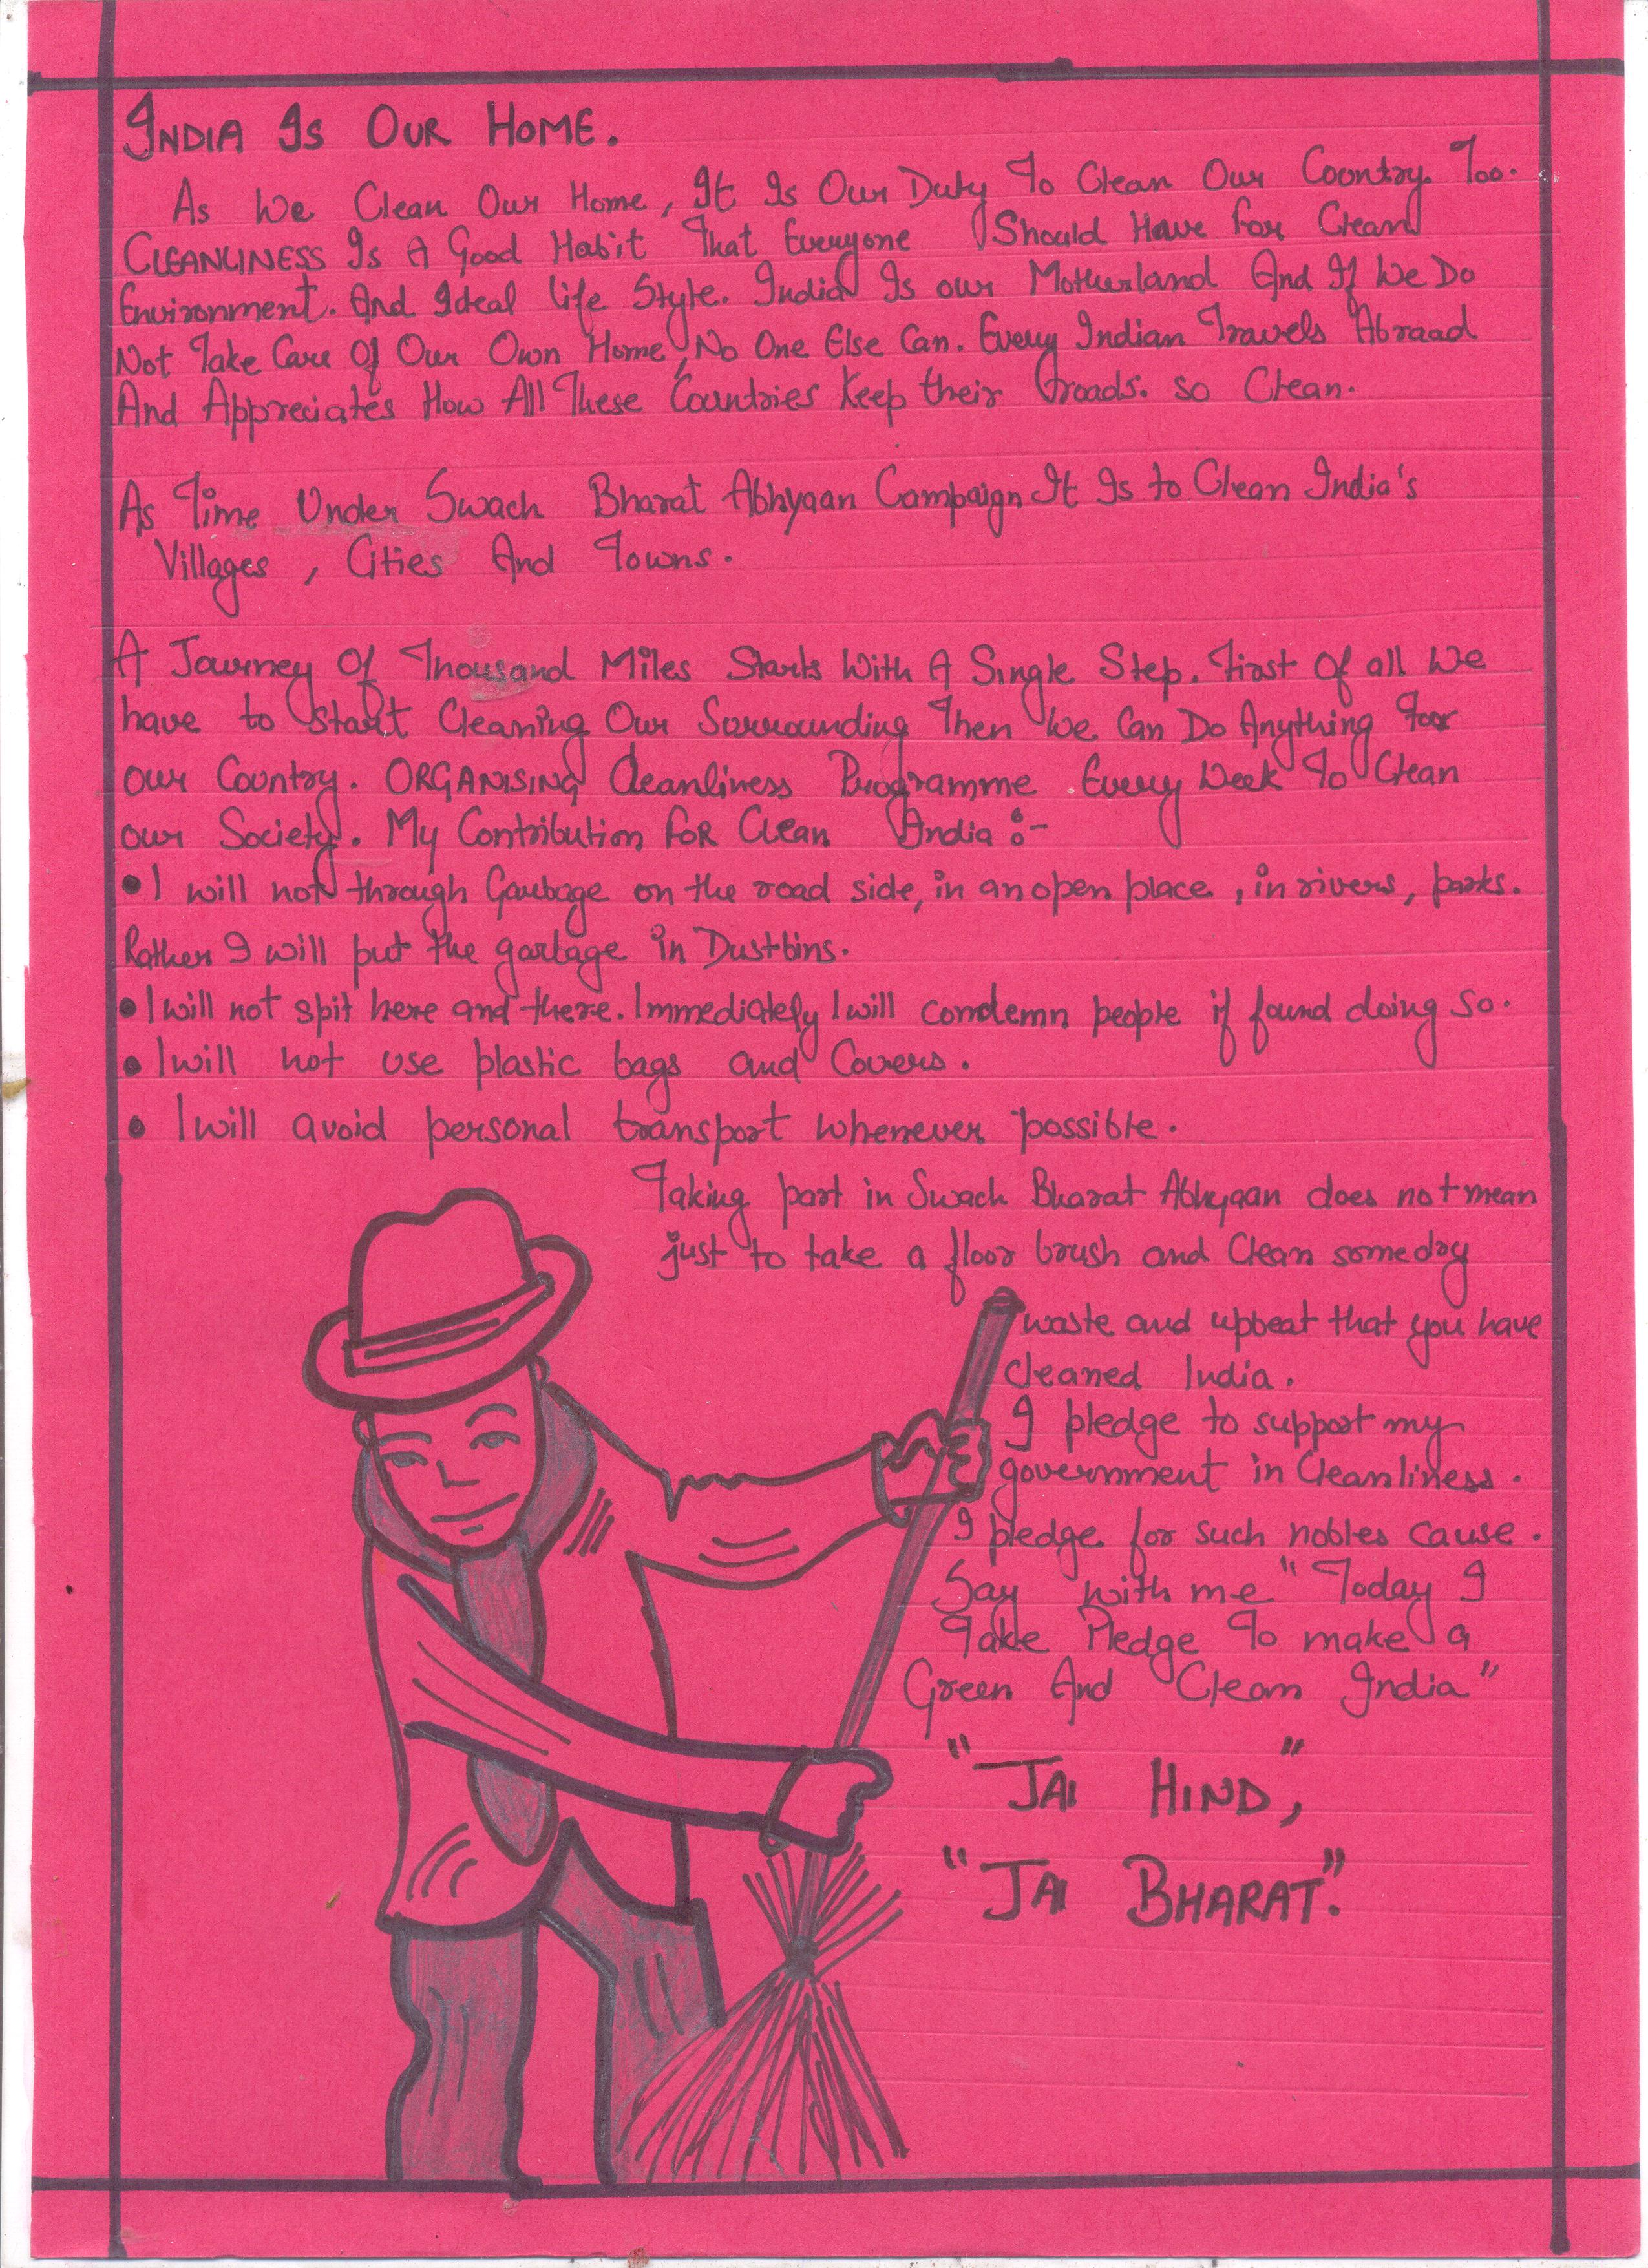 INDIA IS OUR HOME.
As We Clean Our Home, It Is Our Duty To Clean Our Country Too.
CLEANLINESS Is A Good Habit That Everyone Should Have For Clean
Environment. And Ideal Life Style. India Is our Motherland And If We Do
Not Take Care Of Our Own Home, No One Else Can. Every Indian Travels Abraad
And Appreciates How All These Countries Keep their roads. so Clean.
As Time Under Swach Bharat Abhyaan Campaign It Is to Clean India's
Villages, Cities And Towns.
A Journey Of Thousand Miles Starts With A Single Step. First Of all We
have to Start Cleaning Our Surrounding Then We Can Do Anything For
our Country. ORGANISING Cleanliness Programme Every Week To Clean
our Society. My Contribution FoR Clean India :-
• I will not through Garbage on the road side, in an open place, in rivers, parks.
Rather I will put the garbage in Dustbins.
• I will not spit here and there. Immediately I will condemn people if found doing so.
• I will not use plastic bags and Covers.
• I will avoid personal transport whenever possible.
Taking part in Swach Bharat Abhyaan does not mean
just to take a floor brush and Clean some dry
waste and upbeat that you have
cleaned India.
I pledge to support my
government in Cleanliness.
I pledge for such nobles cause.
Say with me "Today I
Take Pledge To make a
Green And Clean India"
"JAI HIND",
"JAI BHARAT".